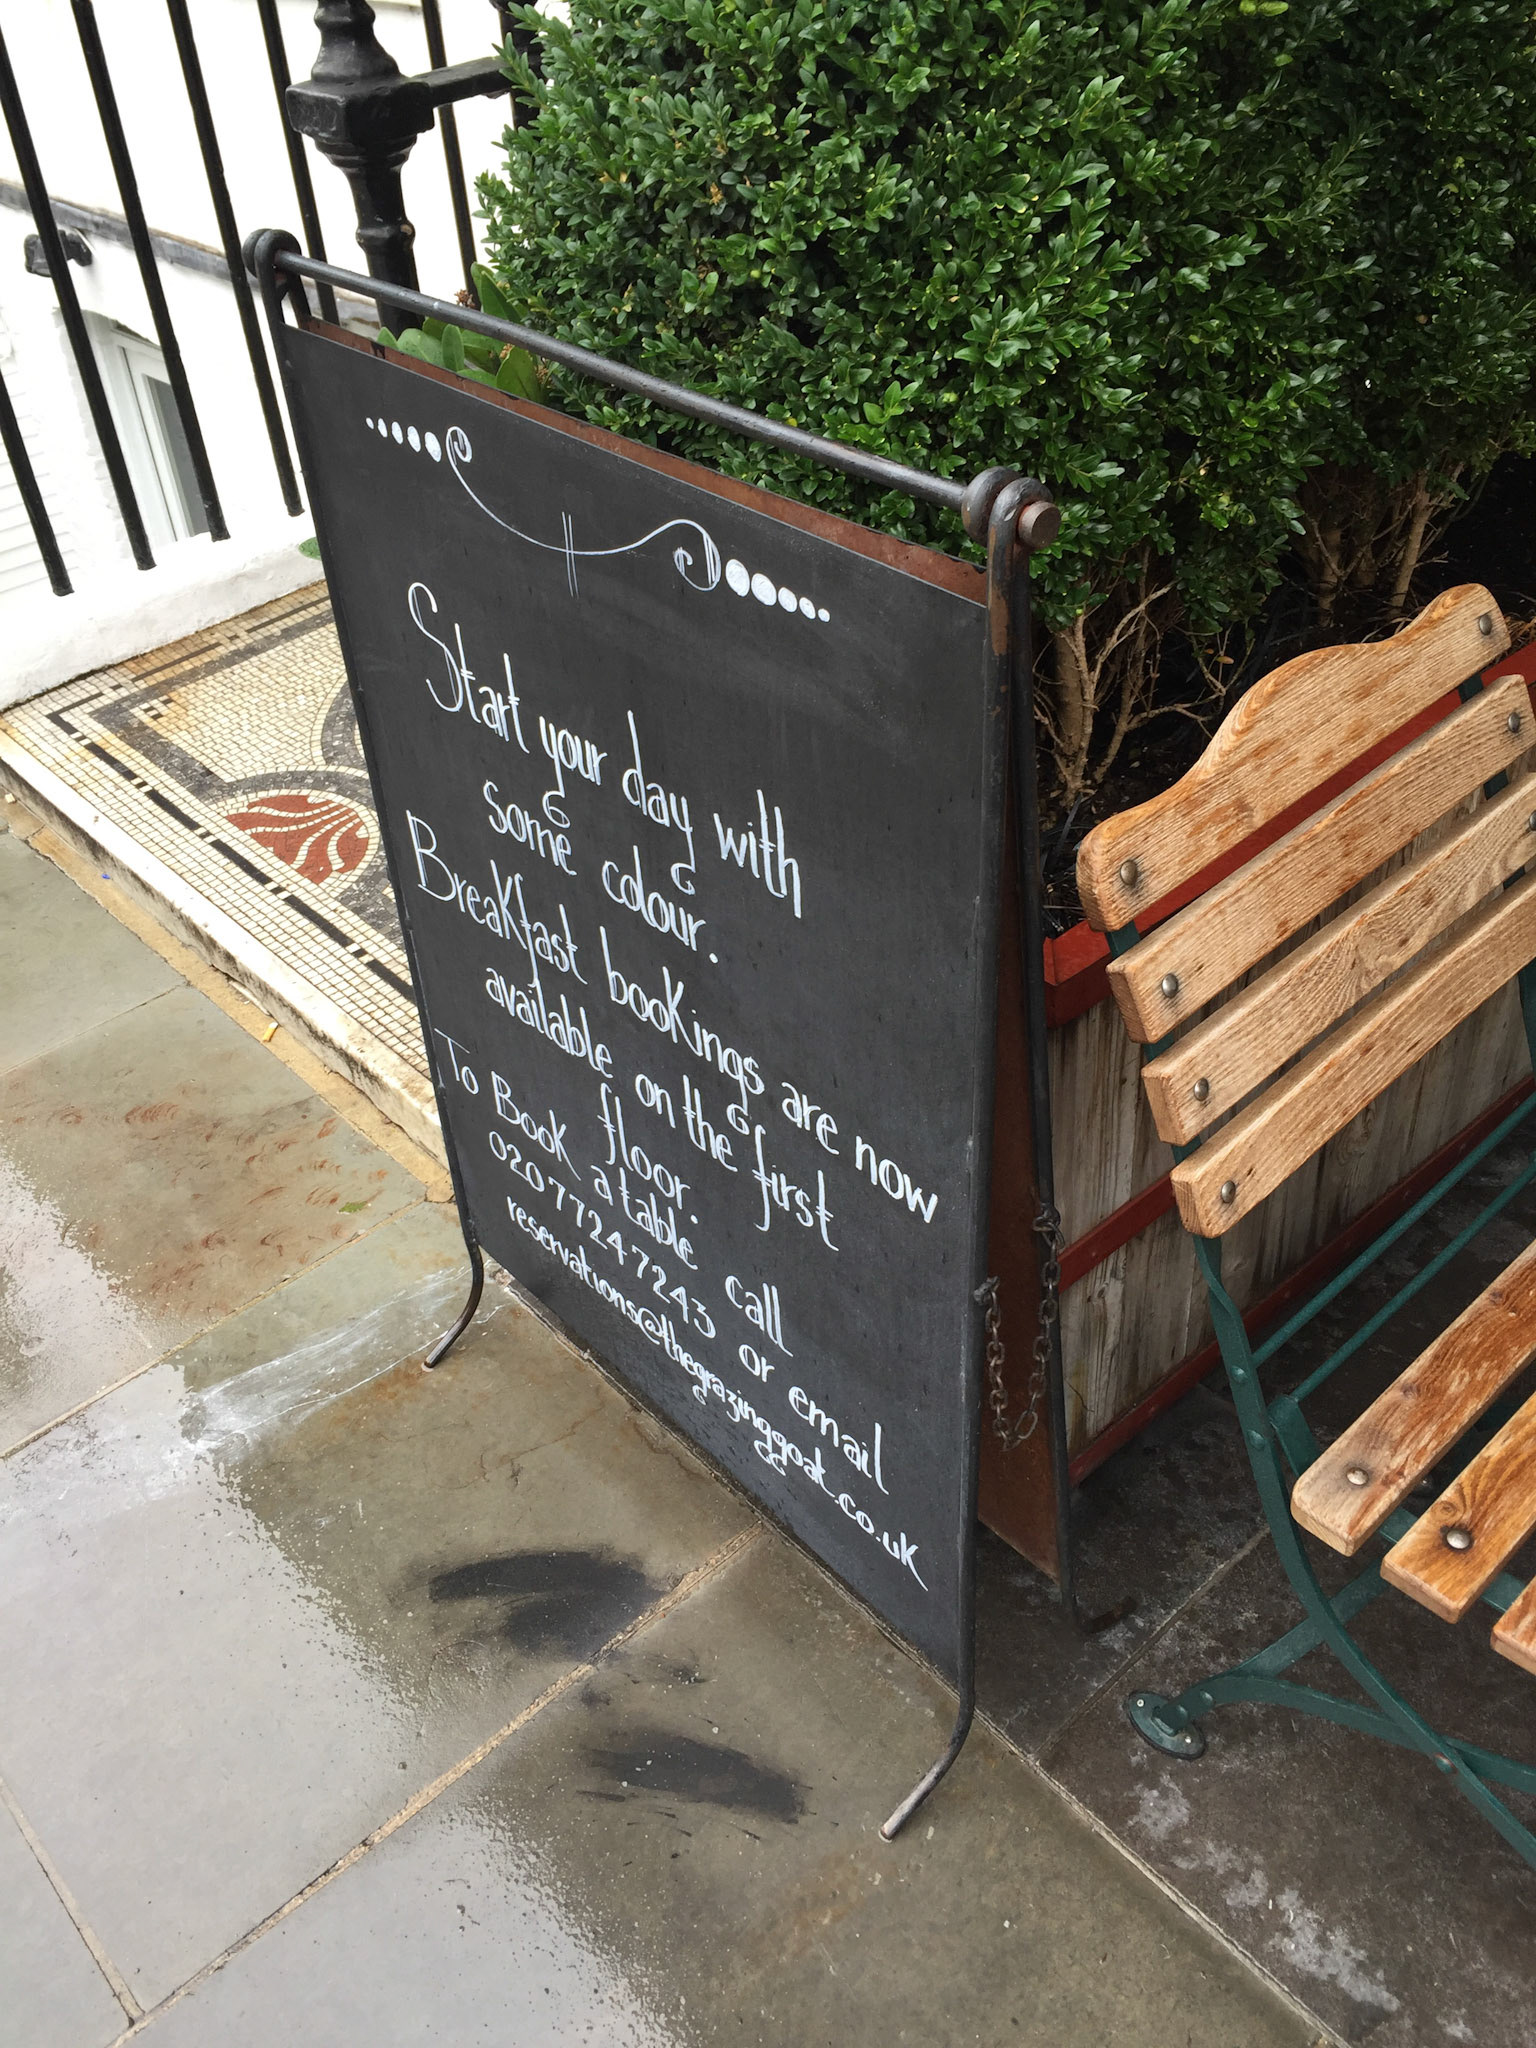 Start your day with
some colour.
Breakfast bookings are now
available on the first
floor.
To Book a table call
020 7724 7243 or email
reservations@thegrazinggoat.co.uk